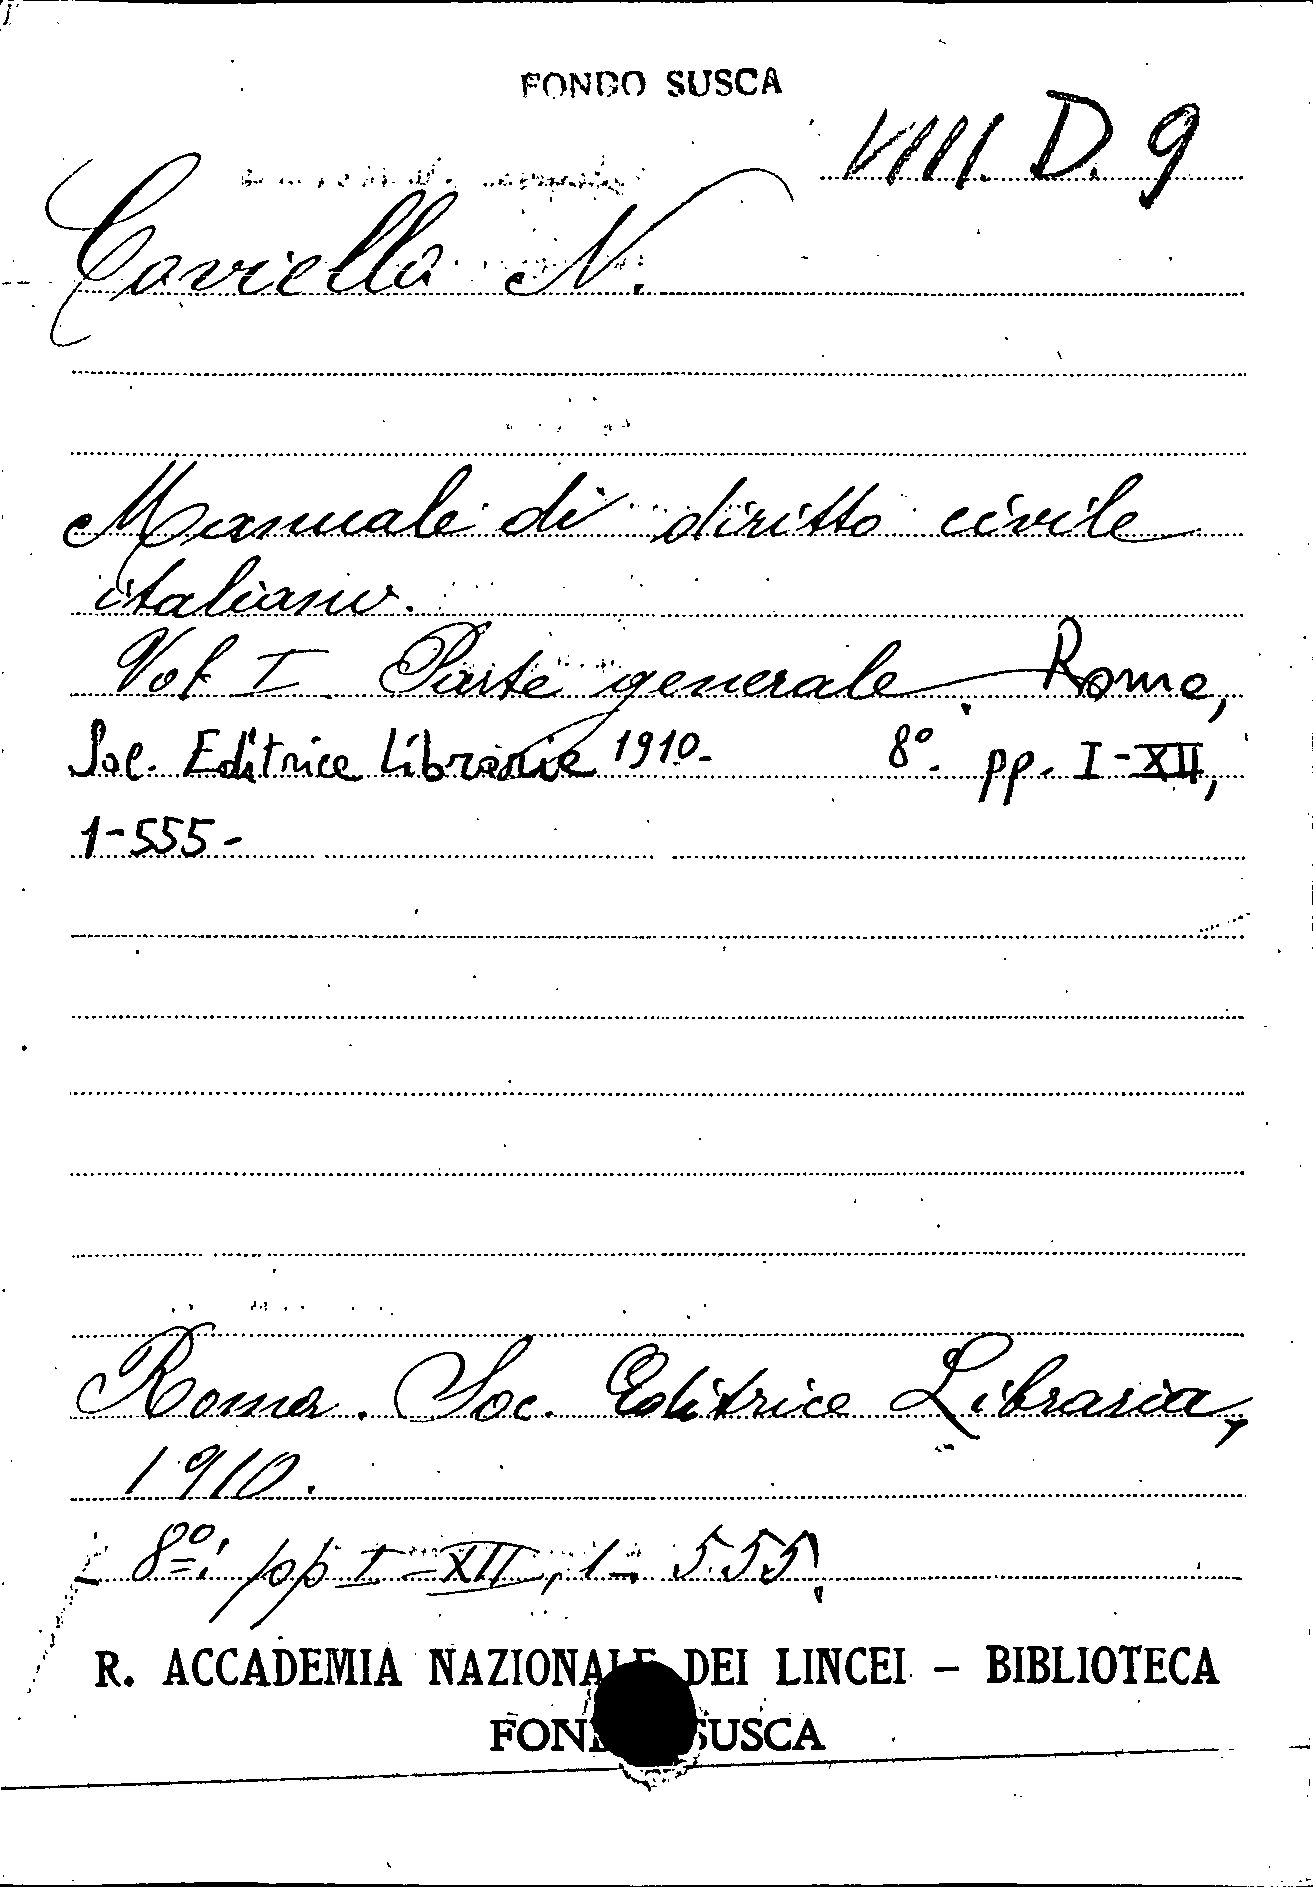 FONDO SUSCA
VIII. D. 9
Coviello N.
Manuale di diritto civile
italiano.
Vol I Parte generale. Roma,
Soc. Editrice Libraria 1910. 8º. pp. I-XII,
1-555-
Roma. Soc. Editrice Libraria,
1910.
8º: pp I-XII, 1-555.
R. ACCADEMIA NAZIONALE DEI LINCEI – BIBLIOTECA
FONDO SUSCA